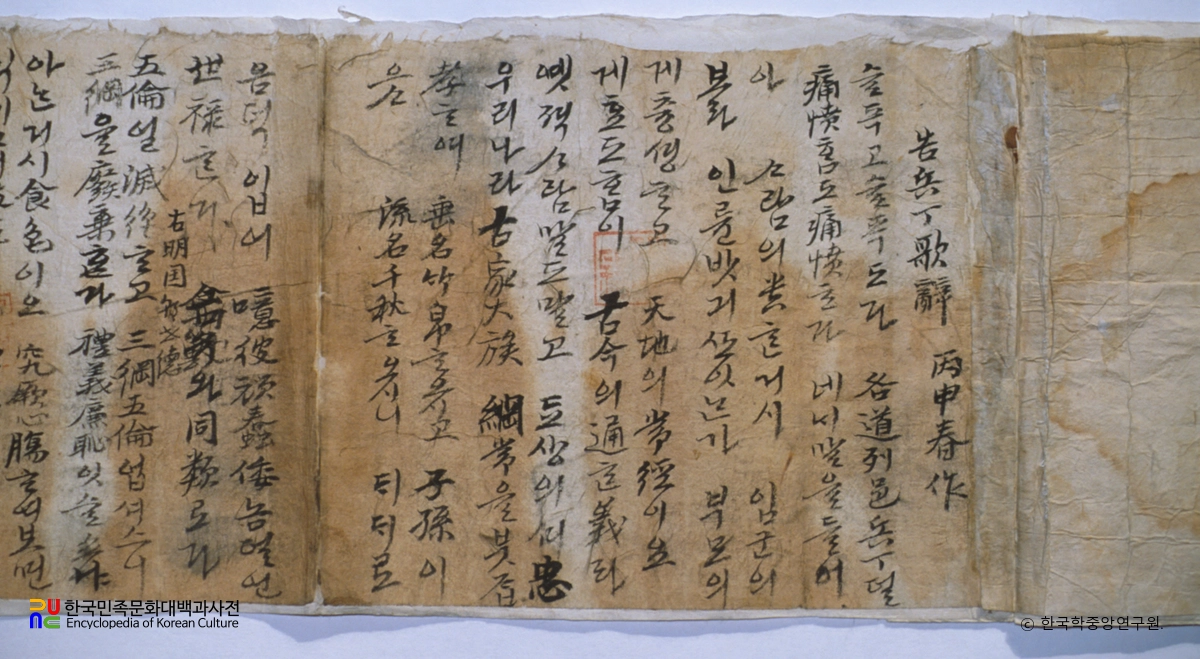 告兵丁歌辭 丙申春作
슬푸고 슬푸도다 各道列邑 兵丁덜
痛憤ᄒᆞ도 痛憤ᄒᆞ다 네 니 말을 들어
아 ᄉᆞ람의 貴ᄒᆞᆫ 거시 임군의
인륜밧긔 부모의
게 츙셩ᄒᆞ고 天地의 常經이요
게 효도ᄒᆞ미 古今의 通ᄒᆞᆫ 義라
옛젹 ᄉᆞ람 말도 말고 忠
우리나라 古家大族 綱常을 붓즙
孝ᄒᆞ여 垂名竹帛ᄒᆞ고 子孫이
은 流名千秋 ᄃᆡᄃᆡ로
음덕 입어 噫彼頑蠢倭놈
世祿ᄒᆞᆫ 와 同類로다
古明国
五倫얼 滅絶ᄒᆞ고 三綱五倫 업셔스니
三綱을 廢棄ᄒᆞᆫ다 禮義廉恥 잇슬손야
아는 거시 食色이오 究厥心腸ᄒᆞ여보면
한국민족문화대백과사전
Encyclopedia of Korean Culture
© 한국학중앙연구원.